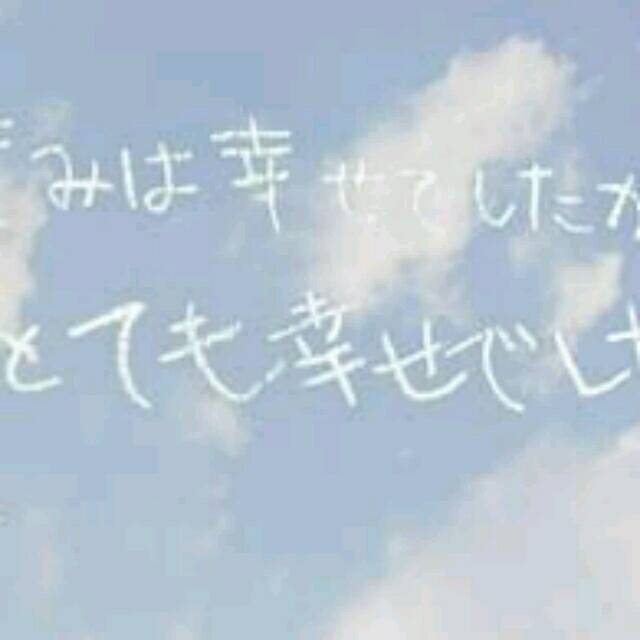 きみは幸せでしたか
とても幸せでした